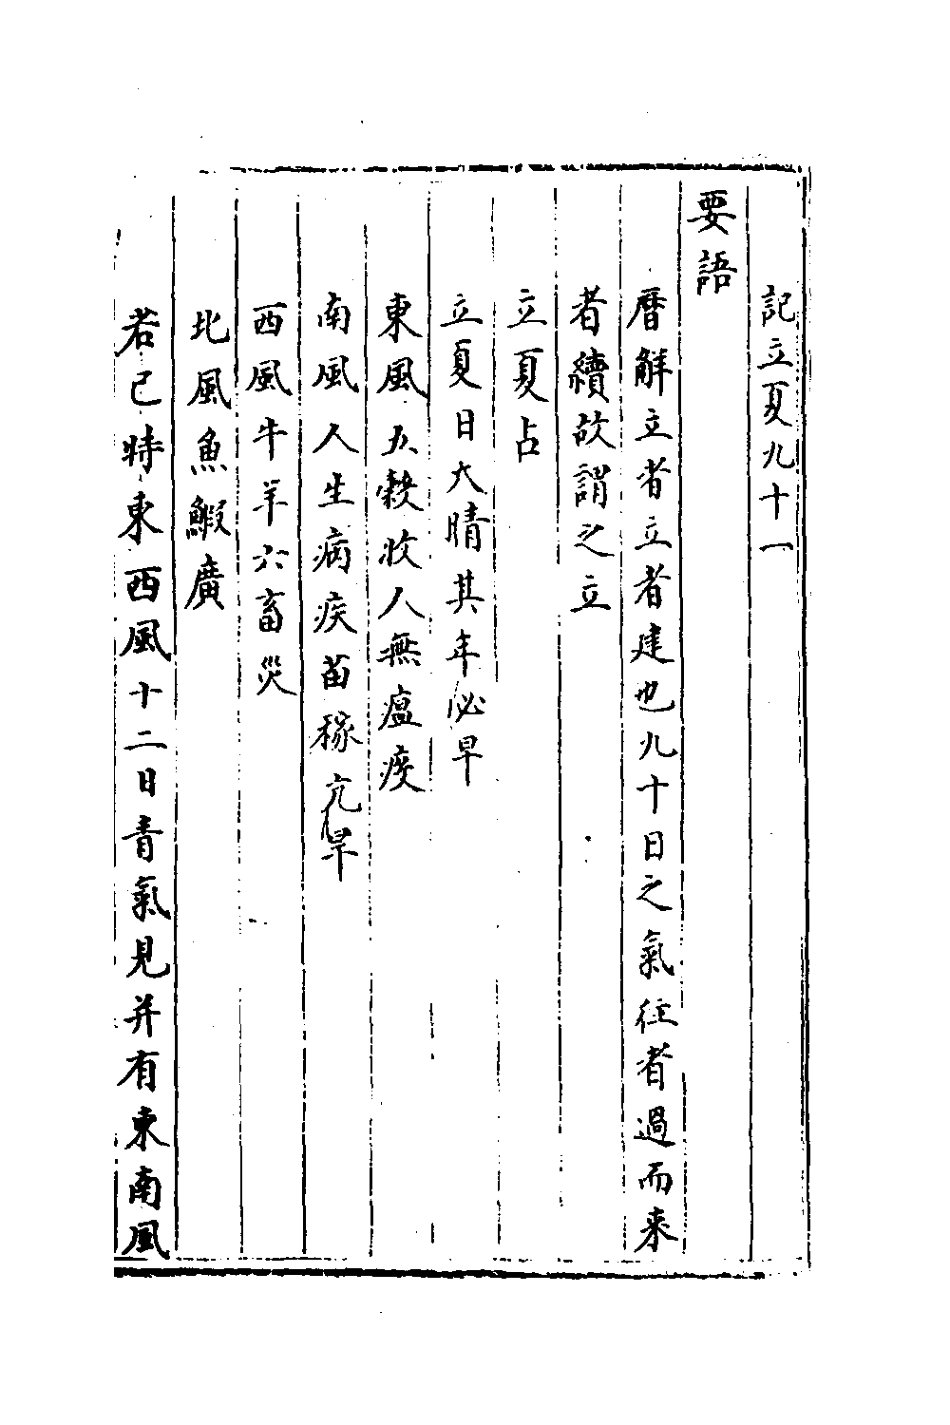 記立夏九十一
要語
暦解立者立者建也九十日之氣往者過而来
者續故謂之立
立夏占
立夏日大晴其年必旱
東風五穀收人無瘟疫
南風人生病疾苗稼亢旱
西風牛羊六畜災
北風魚鰕廣
若已時東西風十二日青氣見并有東南風